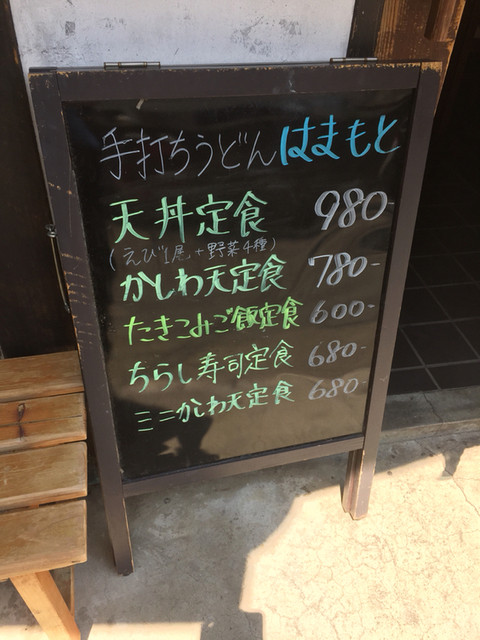 手打ちうどんはまもと
天丼定食 980-
(えび1尾+野菜4種)
かしわ天定食 780-
たきこみご飯定食 600-
ちらし寿司定食 680-
ミニかしわ天定食 680-